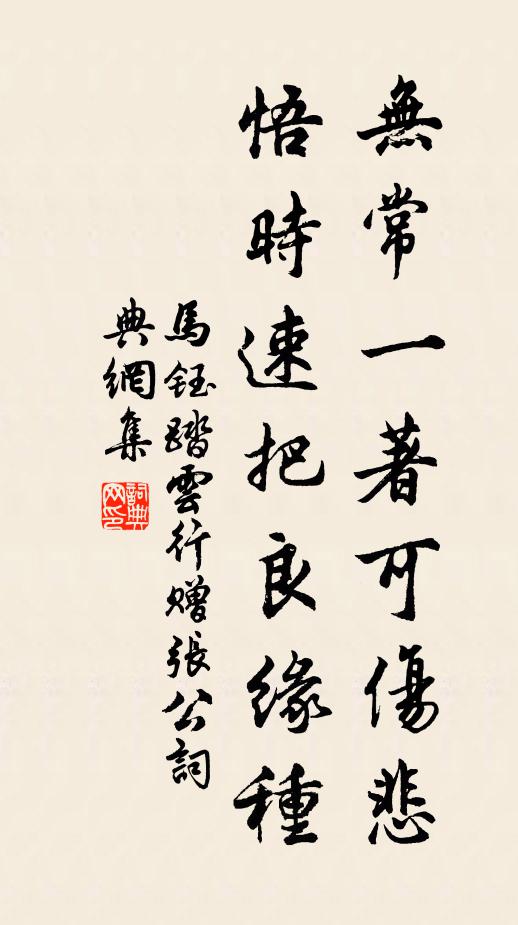 無常一著可傷悲
悟時速把良緣種
馬鈺踏雲行贈張公詞
典網集
詞典网印